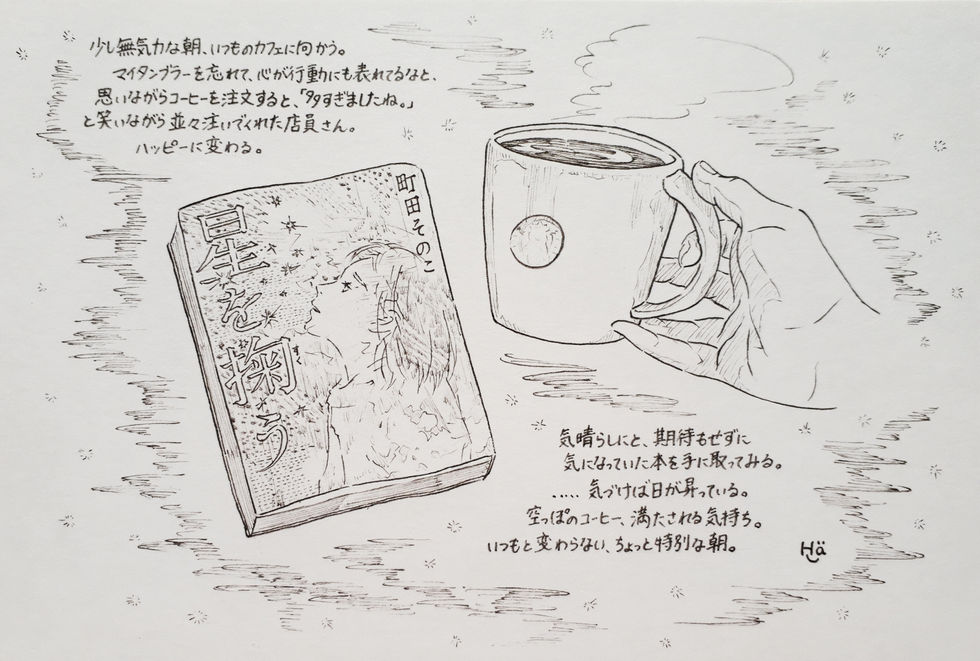 少し無気力な朝、いつものカフェに向かう。
マイタンブラーを忘れて、心が行動にも表れてるなと、
思いながらコーヒーを注文すると、「多すぎましたね。」
と笑いながら並々注いでくれた店員さん。
ハッピーに変わる。
町田そのこ
星を掬う
すく
気晴らしにと、期待もせずに
気になっていた本を手に取ってみる。
..... 気づけば日が昇っている。
空っぽのコーヒー、満たされる気持ち。
いつもと変わらない、ちょっと特別な朝。
Hä